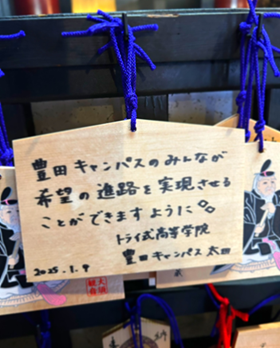 豊田キャンパスのみんなが
希望の進路を実現させる
ことができますように。。
トライ式高等学院
豊田キャンパス 太田
2025.1.9
大須
観音